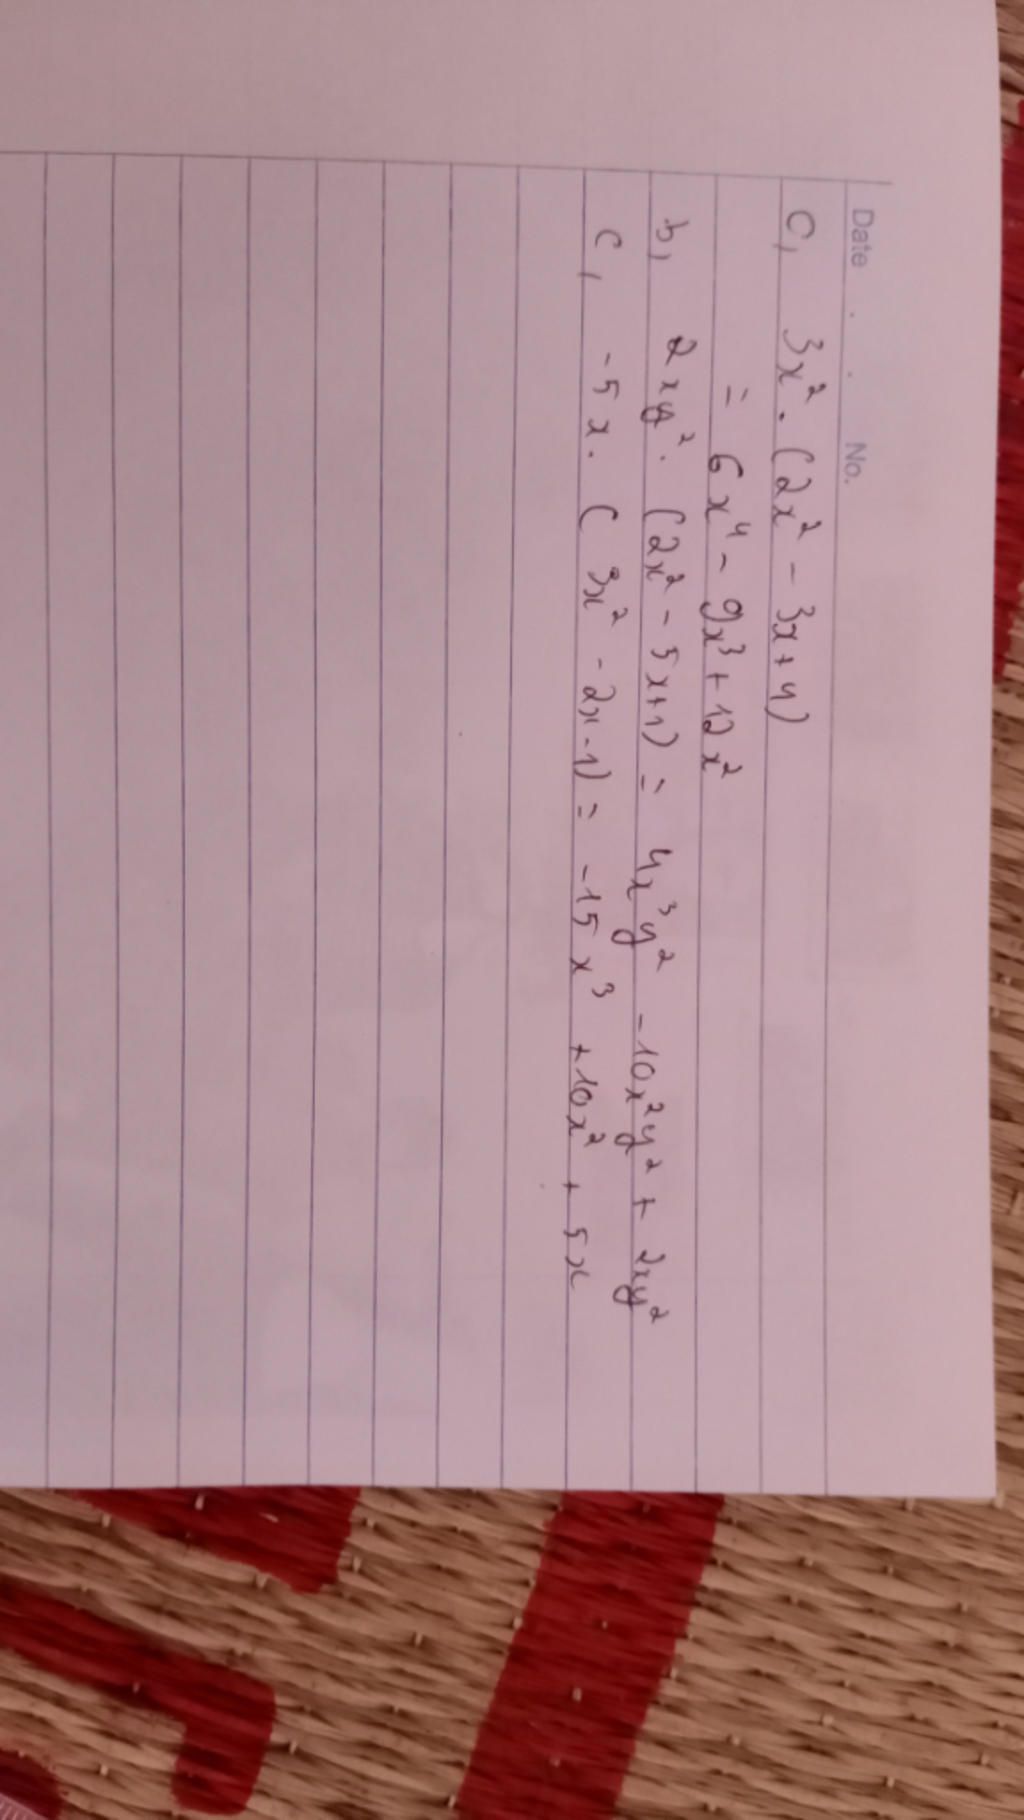 Date . . No.
C, 3x² . (2x² - 3x + 4)
= 6x⁴ - 9x³ + 12x²
b, 2xy² . (2x² - 5x + 1) = 4x³y² - 10x²y² + 2xy²
c, -5x . (3x² - 2x - 1) = -15x³ + 10x² + 5x